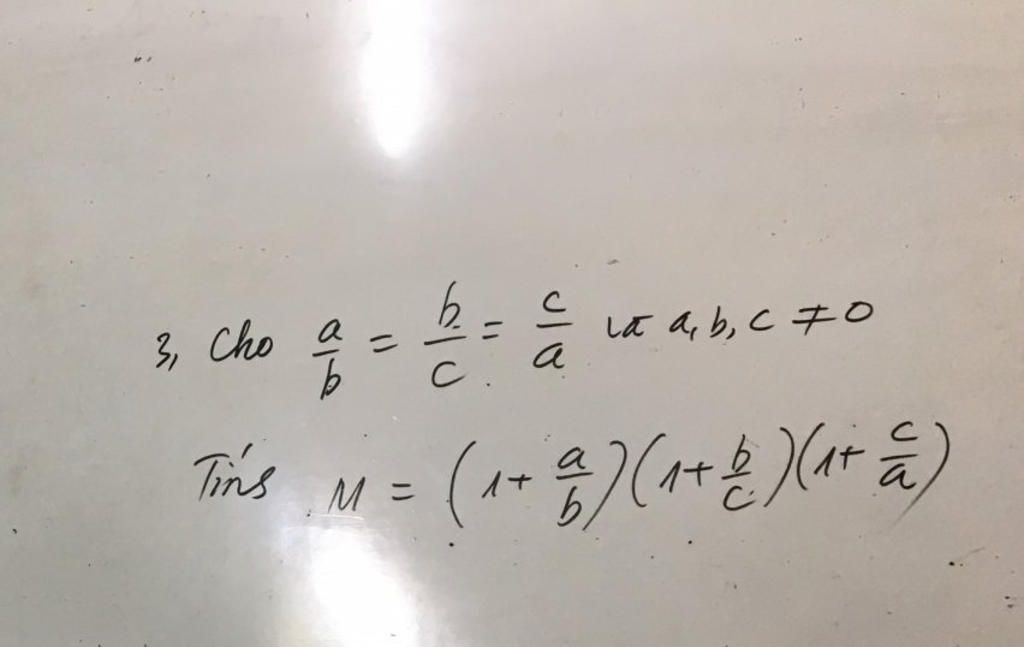 3, Cho a/b = b/c = c/a và a, b, c ≠ 0
Tính M = (1 + a/b)(1 + b/c)(1 + c/a)